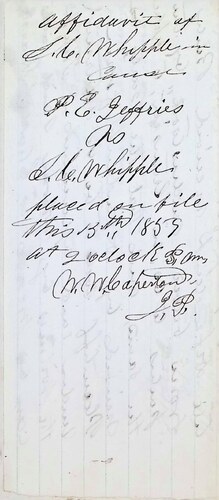 Affidavit of
S. C. Whipple in
Cause
P. E. Jeffries
vs
S. C. Whipple
placed on file
this 15th 1857
at 2 oclock P. m
W. W. Caperton
J. P.